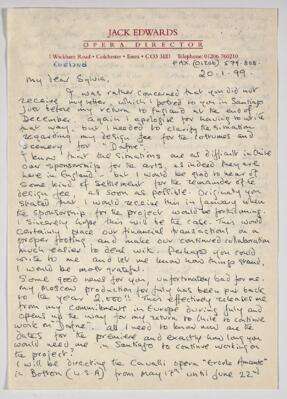 JACK EDWARDS
OPERA DIRECTOR
1 Wickham Road • Colchester • Essex • CO3 3ED Telephone: 01206 760210
ENGLAND FAX. (01206) 579.808.
20.1.99
My dear Sylvia,
I was rather concerned that you did not
receive my letter, which I posted to you in Santiago
just before my return to England at the end of
December. Again I apologise for having to write
that way, but I needed to clarify the situation
regarding my design fee for the costumes and
scenery for "Dafne".
I know that the situations are as difficult in Chile
over sponsorship for the arts, as indeed they are
here in England, but I would be glad to hear of
some kind of settlement for the remainder of the
design fee as soon as possible. Originally you
stated that I would receive this in January when
the sponsorship for the project would be forthcoming.
I sincerely hope this will be the case. This would
certainly place our financial transactions on a
proper footing and make our continued collaboration
much easier to deal with. Perhaps you could
write to me and let me know how things stand,
I would be most grateful.
Some good news for you, unfortunately bad for me.
My Moscow production for July has been put back
to the year 2,000!! This effectively releases me
from my commitments in Europe during July and
opens up the way for my return to Chile to continue
work on "Dafne". All I need to know now are the
dates for the premiere and exactly how long you
would need me in Santiago to continue working on
the project?
I will be directing the Cavalli opera "Ercole Amante"
in Boston (U.S.A) from May 17th until June 22nd